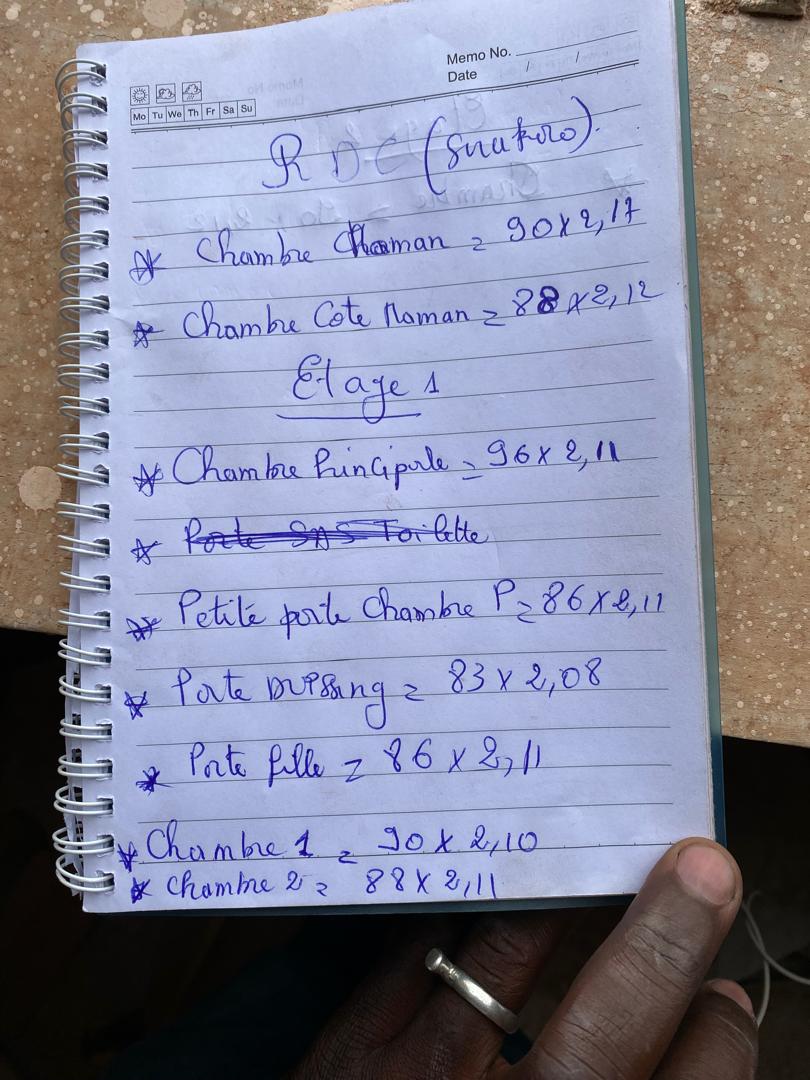 Memo No.
Date / /
Mo Tu We Th Fr Sa Su
RDC (
* Chambre Maman = 90 x 2,17
* Chambre Cote Maman = 88 x 2,12
Etage 1
* Chambre Principale = 96 x 2,11
* Porte SAS Toilette
* Petite porte Chambre P = 86 x 2,11
* Porte = 83 x 2,08
* Porte fille = 86 x 2,11
* Chambre 1 = 90 x 2,10
* Chambre 2 = 88 x 2,11